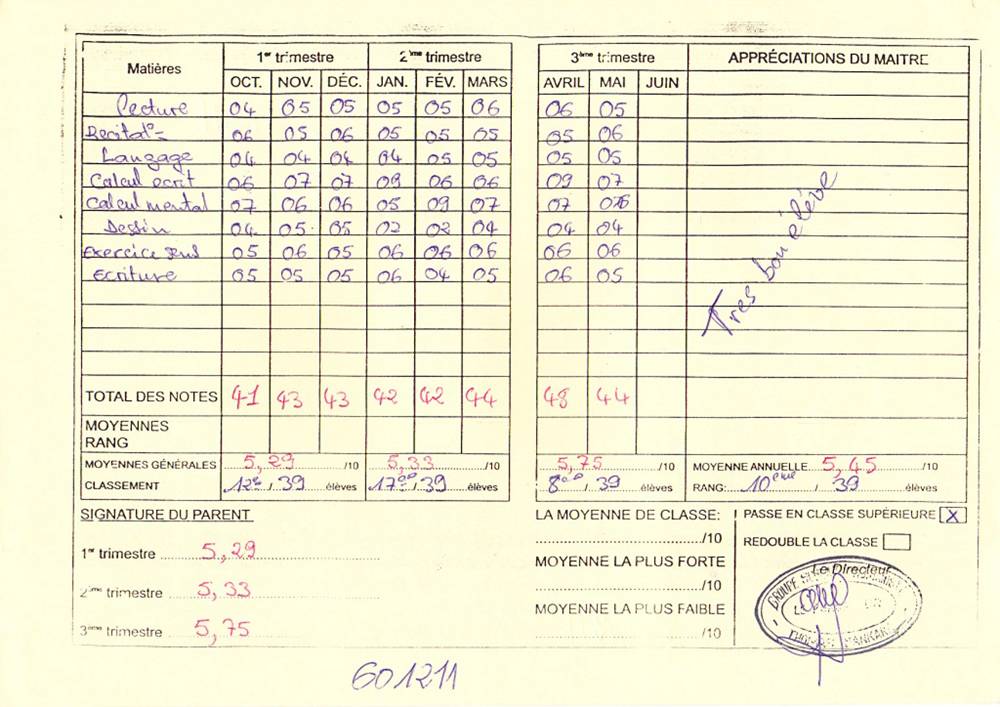 Matières 1er trimestre 2ème trimestre 3ème trimestre APPRÉCIATIONS DU MAITRE
OCT. NOV. DÉC. JAN. FÉV. MARS AVRIL MAI JUIN
Lecture 04 05 05 05 05 06 06 05
Recitat°- 06 05 06 05 05 05 05 06
Langage 04 04 04 04 05 05 05 05
Calcul ecrit 06 07 07 09 06 06 09 07
Calcul mental 07 06 06 05 09 07 07
Dessin 04 05 05 02 02 04 04 04
Exercice sens 05 06 05 06 06 06 06 06
Ecriture 05 05 05 06 04 05 06 05
Tres bon élève
TOTAL DES NOTES 41 43 43 42 42 44 48 44
MOYENNES
RANG
MOYENNES GÉNÉRALES 5,29 /10 5,33 /10 5,75 /10 MOYENNE ANNUELLE 5,45 /10
CLASSEMENT 12e / 39 élèves 17èe / 39 élèves 8èe / 39 élèves RANG: 10ème / 39 élèves
SIGNATURE DU PARENT
1er trimestre 5,29
2ème trimestre 5,33
3ème trimestre 5,75
LA MOYENNE DE CLASSE:
/10
MOYENNE LA PLUS FORTE
/10
MOYENNE LA PLUS FAIBLE
/10
PASSE EN CLASSE SUPÉRIEURE X
REDOUBLE LA CLASSE
Le Directeur
GROUPE
THOMAS SANKARA
601211